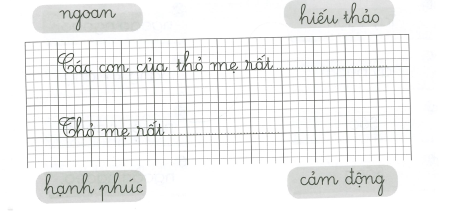 ngoan
hiếu thảo
Các con của thỏ mẹ rất
Thỏ mẹ rất
hạnh phúc
cảm động